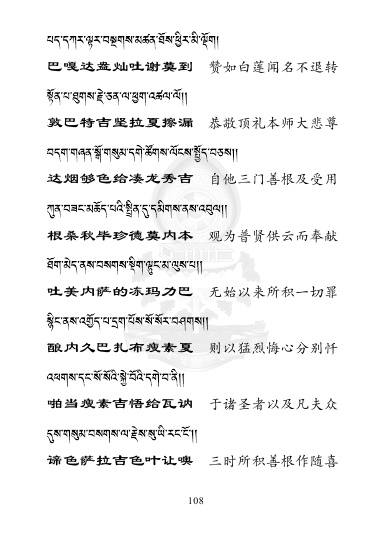 པད་དཀར་ལྟར་བསྔགས་མཚན་ཐོས་ཕྱིར་མི་ལྡོག།
巴嘎达盎灿吐谢莫到 赞如白莲闻名不退转
སྟོན་པ་ཐུགས་རྗེ་ཅན་ལ་ཕྱག་འཚལ་ལོ།།
敦巴特吉坚拉夏擦漏 恭敬顶礼本师大悲尊
བདག་གཞན་སྒོ་གསུམ་དགེ་ཚོགས་ལོངས་སྤྱོད་བཅས།།
达烟够色给凑龙秀吉 自他三门善根及受用
ཀུན་བཟང་མཆོད་པའི་སྤྲིན་དུ་དམིགས་ནས་འབུལ།།
根桑秋毕珍德莫内本 观为普贤供云而奉献
ཐོག་མེད་ནས་བསགས་སྡིག་ལྟུང་མ་ལུས་པ།།
吐美内萨的冻玛力巴 无始以来所积一切罪
སྙིང་ནས་འགྱོད་པ་དྲག་པོས་སོ་སོར་བཤགས།།
酿内久巴扎布瘦素夏 则以猛烈悔心分别忏
འཕགས་དང་སོ་སོའི་སྐྱེ་བོའི་དགེ་བ་ནི།།
啪当瘦素吉悟给瓦讷 于诸圣者以及凡夫众
དུས་གསུམ་བསགས་ལ་རྗེས་སུ་ཡི་རང་ངོ་།།
谛色萨拉吉色叶让噢 三时所积善根作随喜
108